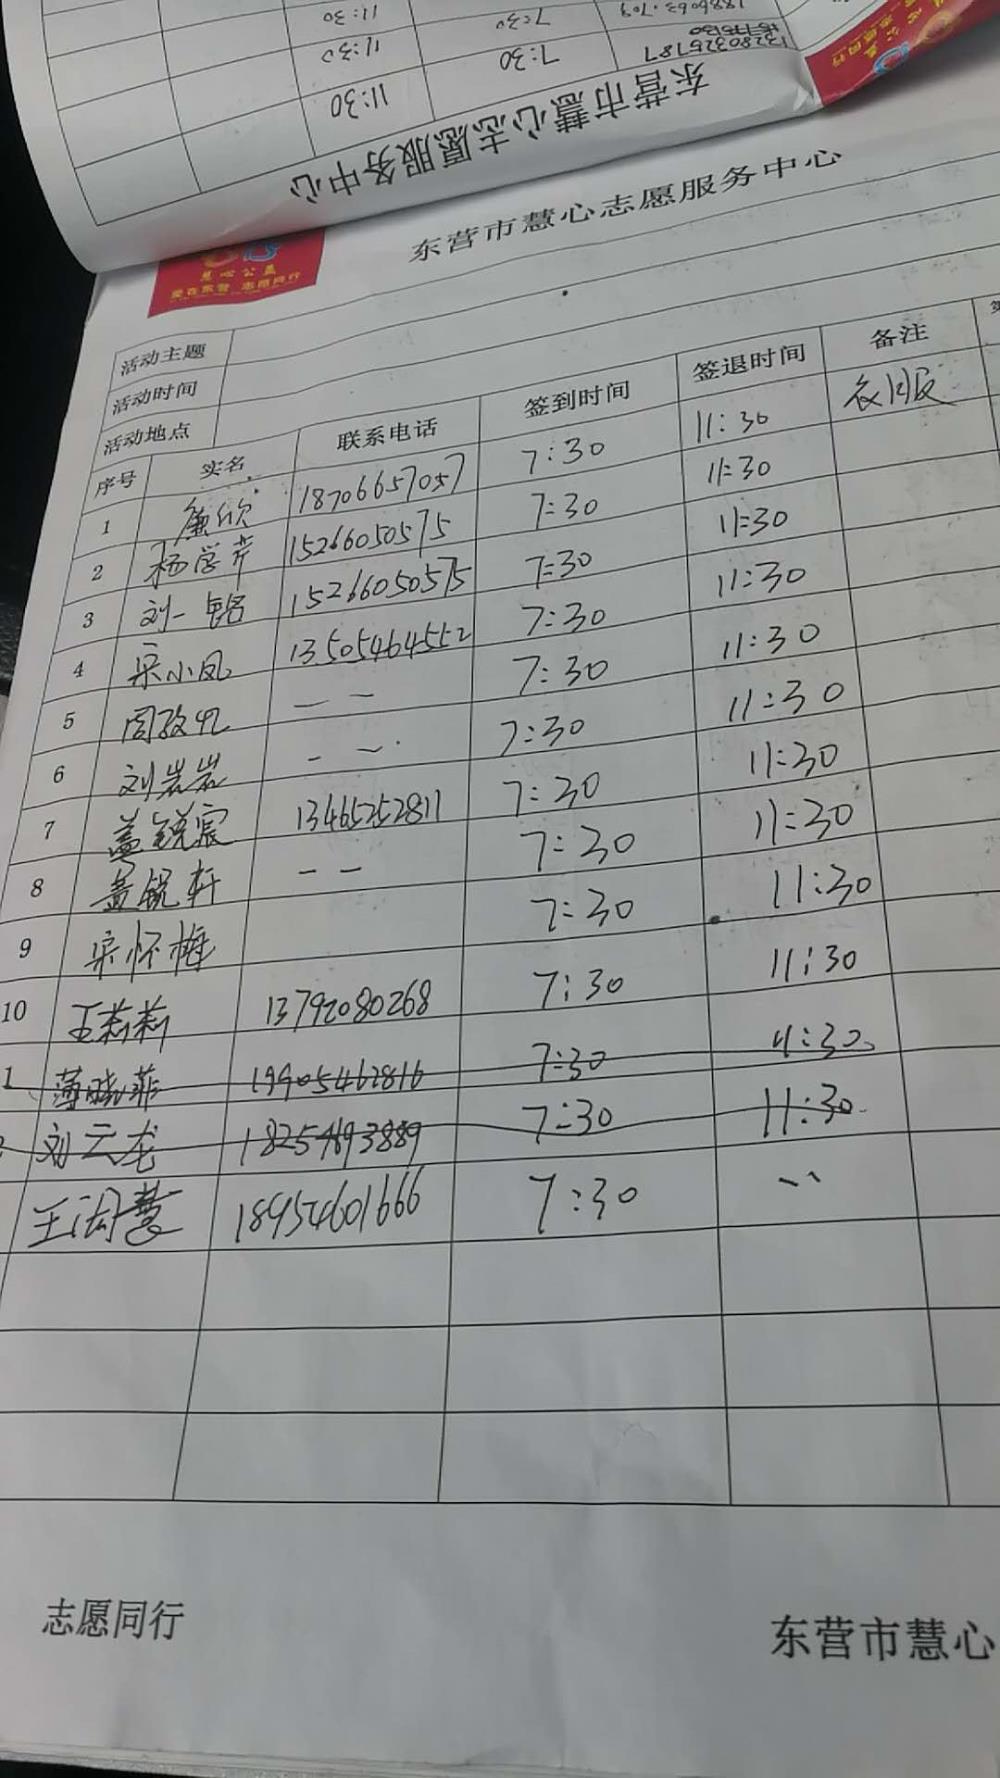 188063.709
11:30
7:30
13280326787
11:30
7:30
11:30
东营市慧心志愿服务中心
东营市慧心志愿服务中心
慧心公益
爱在东营 志愿同行
活动主题
活动时间
活动地点
序号 实名 联系电话 签到时间 签退时间 备注
1 廉欣 18706657057 7:30 11:30 衣服
2 杨学芹 15266050575 7:30 11:30
3 刘一铭 15266050575 7:30 11:30
4 宋小凤 13505464552 7:30 11:30
5 一 一 7:30 11:30
6 刘岩岩 一 一 7:30 11:30
7 盖锐宸 13465252811 7:30 11:30
8 盖锐轩 一 一 7:30 11:30
9 宋怀梅 7:30 11:30
10 王莉莉 13792080268 7:30 11:30
1 薄晓菲 19905462816 7:30 11:30
刘云龙 18254693889 7:30 11:30
王 慧 18954601666 7:30
志愿同行
东营市慧心